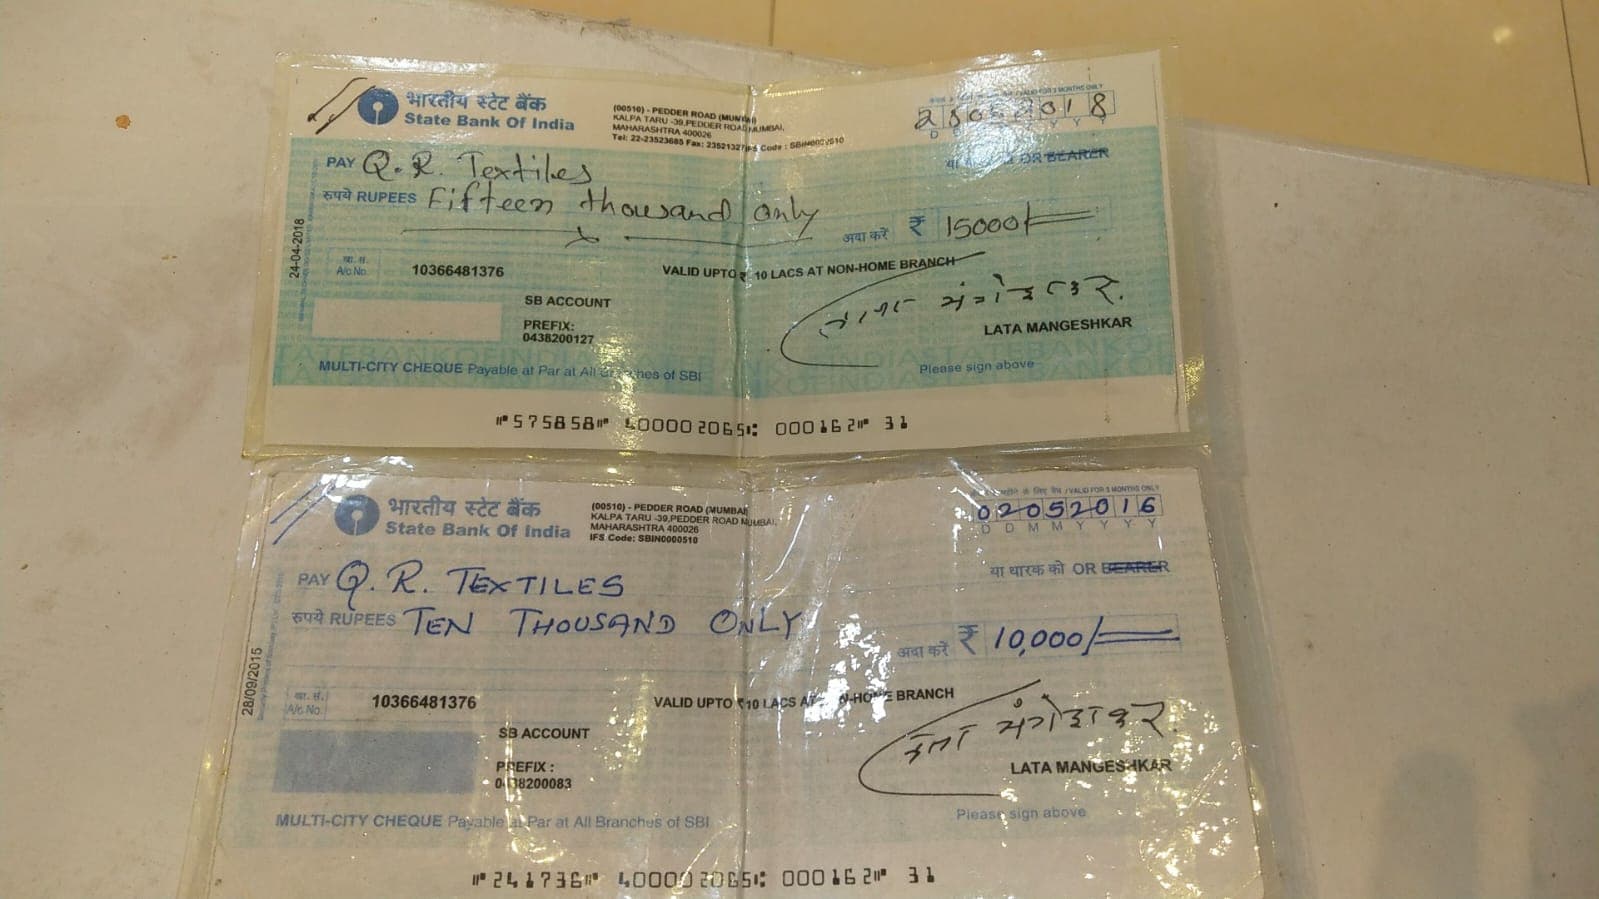 भारतीय स्टेट बैंक
State Bank Of India
(00510) - PEDDER ROAD (MUMBAI)
KALPA TARU -39,PEDDER ROAD MUMBAI,
MAHARASHTRA 400026
Tel: 22-23523685 Fax: 23521327 IFS Code : SBIN0000510
VALID FOR 3 MONTHS ONLY
2018
PAY Q.R. Textiles
या OR BEARER
रुपये RUPEES Fifteen thousand only
अदा करें ₹ 15000/-
24-04-2018
खा. सं.
A/c No. 10366481376
VALID UPTO ₹ 10 LACS AT NON-HOME BRANCH
SB ACCOUNT
PREFIX:
0438200127
मंगेशकर
LATA MANGESHKAR
MULTI-CITY CHEQUE Payable at Par at All Branches of SBI
Please sign above
⑈575858⑈ 400002065⑆ 000162⑈ 31
भारतीय स्टेट बैंक
State Bank Of India
(00510) - PEDDER ROAD (MUMBAI)
KALPA TARU -39,PEDDER ROAD MUMBAI,
MAHARASHTRA 400026
IFS Code: SBIN0000510
VALID FOR 3 MONTHS ONLY
02052016
D D M M Y Y Y Y
PAY Q. R. TEXTILES
या धारक को OR BEARER
रुपये RUPEES TEN THOUSAND ONLY
अदा करें ₹ 10,000/-
28/09/2015
खा. सं.
A/c No. 10366481376
VALID UPTO ₹ 10 LACS AT NON-HOME BRANCH
SB ACCOUNT
PREFIX :
0438200083
लता मंगेशकर
LATA MANGESHKAR
MULTI-CITY CHEQUE Payable at Par at All Branches of SBI
Please sign above
⑈241736⑈ 400002065⑆ 000162⑈ 31